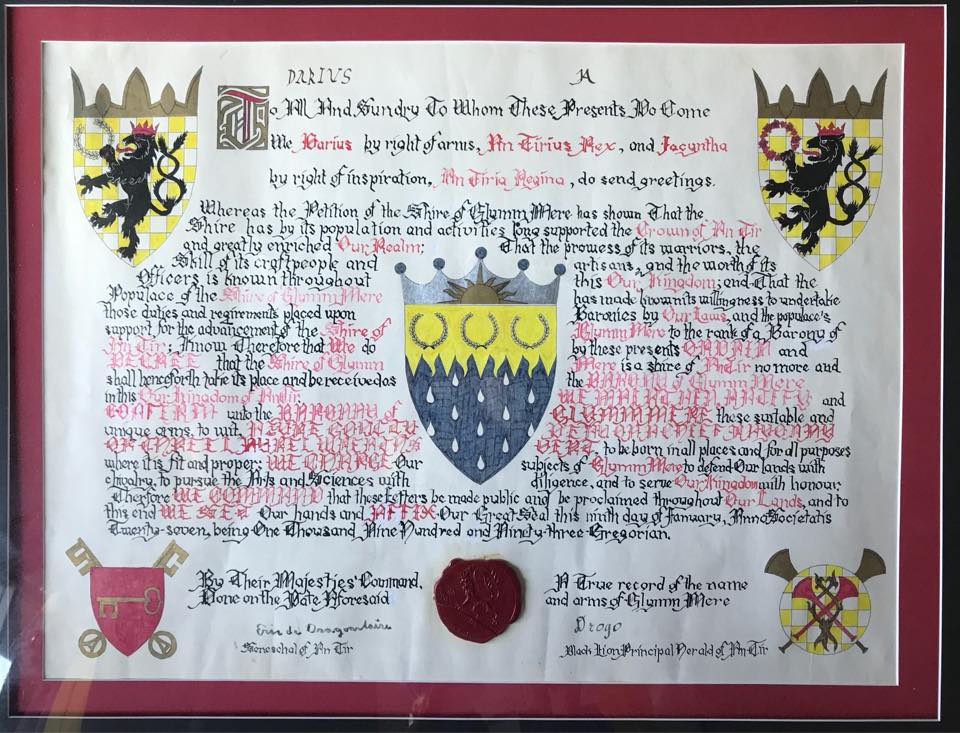 DARIUS JA
To All And Sundry To Whom These Presents Do Come
We Darius by right of arms, An Tirius Rex, and Jacyntha
by right of inspiration, An Tiria Regina, do send greetings.
Whereas the Petition of the Shire of Glymm Mere has shown That the
Shire has by its population and activities long supported the Crown of An Tir
and greatly enriched Our Realm; That the prowess of its warriors, the
Skill of its craftpeople and artisans, and the worth of its
Officers is known throughout this Our Kingdom; and That the
Populace of the Shire of Glymm Mere has made known its willingness to undertake
those duties and requirements placed upon Baronies by Our Laws, and the populace's
support for the advancement of the Shire of Glymm Mere to the rank of a Barony of
An Tir; Know Therefore that We do by these presents ORDAIN and
DECREE that the Shire of Glymm Mere is a shire of An Tir no more and
shall henceforth take its place and be received as the BARONY of Glymm Mere
in this Our Kingdom of An Tir. WE and
CONFIRM unto the of GLYMM MERE these suitable and
unique arms, to wit, AZURE GOUTY
OR THREE LAUREL WREATHS VERT to be born in all places and for all purposes
where it is fit and proper; WE CHARGE Our subjects of Glymm Mere to defend Our lands with
chivalry, to pursue the Arts and Sciences with diligence, and to serve Our Kingdom with honour.
Therefore WE COMMAND that these Letters be made public and be proclaimed throughout Our Lands, and to
this end WE SET Our hands and AFFIX Our Great Seal this ninth day of January, Anno Societatis
Twenty-seven, being One Thousand Nine Hundred and Ninety-three Gregorian.
By Their Majesties' Command,
Done on the Date Aforesaid
Seneschal of An Tir
A True record of the name
and arms of Glymm Mere
Drogo
Black Lion Principal Herald of An Tir